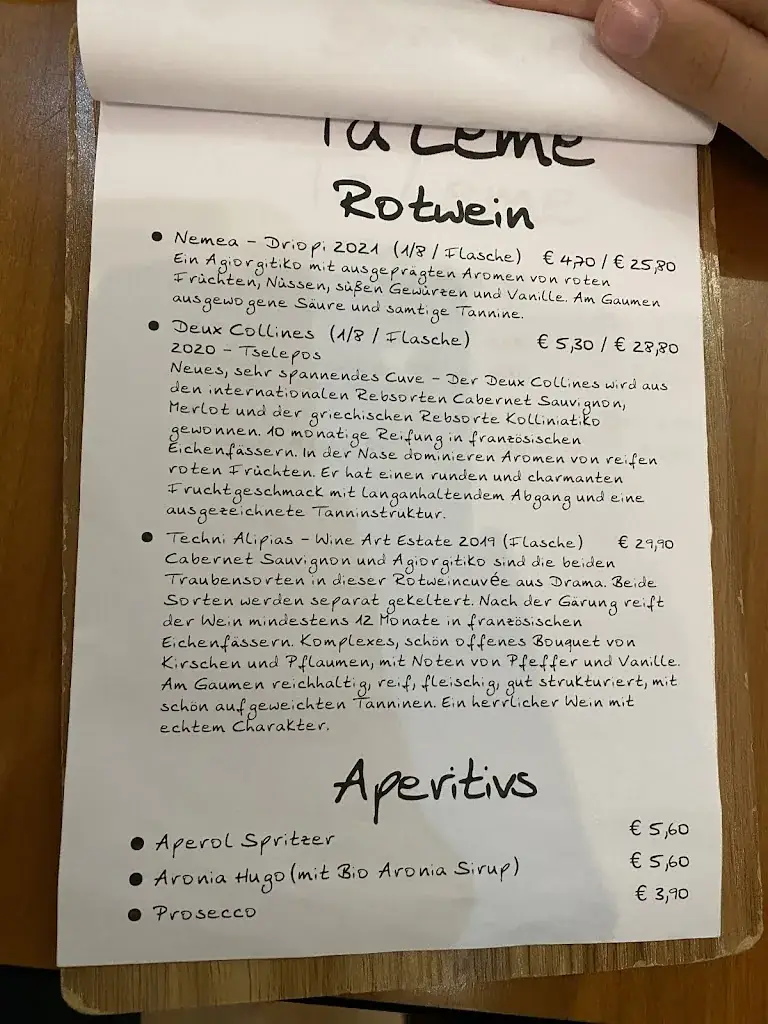 Ta Leme
Rotwein
• Nemea - Driopi 2021 (1/8 / Flasche) € 4,70 / € 25,80
Ein Agiorgitiko mit ausgeprägten Aromen von roten
Früchten, Nüssen, süßen Gewürzen und Vanille. Am Gaumen
ausgewogene Säure und samtige Tannine.
• Deux Collines (1/8 / Flasche) € 5,30 / € 28,80
2020 - Tselepos
Neues, sehr spannendes Cuve - Der Deux Collines wird aus
den internationalen Rebsorten Cabernet Sauvignon,
Merlot und der griechischen Rebsorte Kolliniatiko
gewonnen. 10 monatige Reifung in französischen
Eichenfässern. In der Nase dominieren Aromen von reifen
roten Früchten. Er hat einen runden und charmanten
Fruchtgeschmack mit langanhaltendem Abgang und eine
ausgezeichnete Tanninstruktur.
• Techni Alipias - Wine Art Estate 2019 (Flasche) € 29,90
Cabernet Sauvignon und Agiorgitiko sind die beiden
Traubensorten in dieser Rotweincuvée aus Drama. Beide
Sorten werden separat gekeltert. Nach der Gärung reift
der Wein mindestens 12 Monate in französischen
Eichenfässern. Komplexes, schön offenes Bouquet von
Kirschen und Pflaumen, mit Noten von Pfeffer und Vanille.
Am Gaumen reichhaltig, reif, fleischig, gut strukturiert, mit
schön aufgeweichten Tanninen. Ein herrlicher Wein mit
echtem Charakter.
Aperitivs
• Aperol Spritzer € 5,60
• Aronia Hugo (mit Bio Aronia Sirup) € 5,60
• Prosecco € 3,90